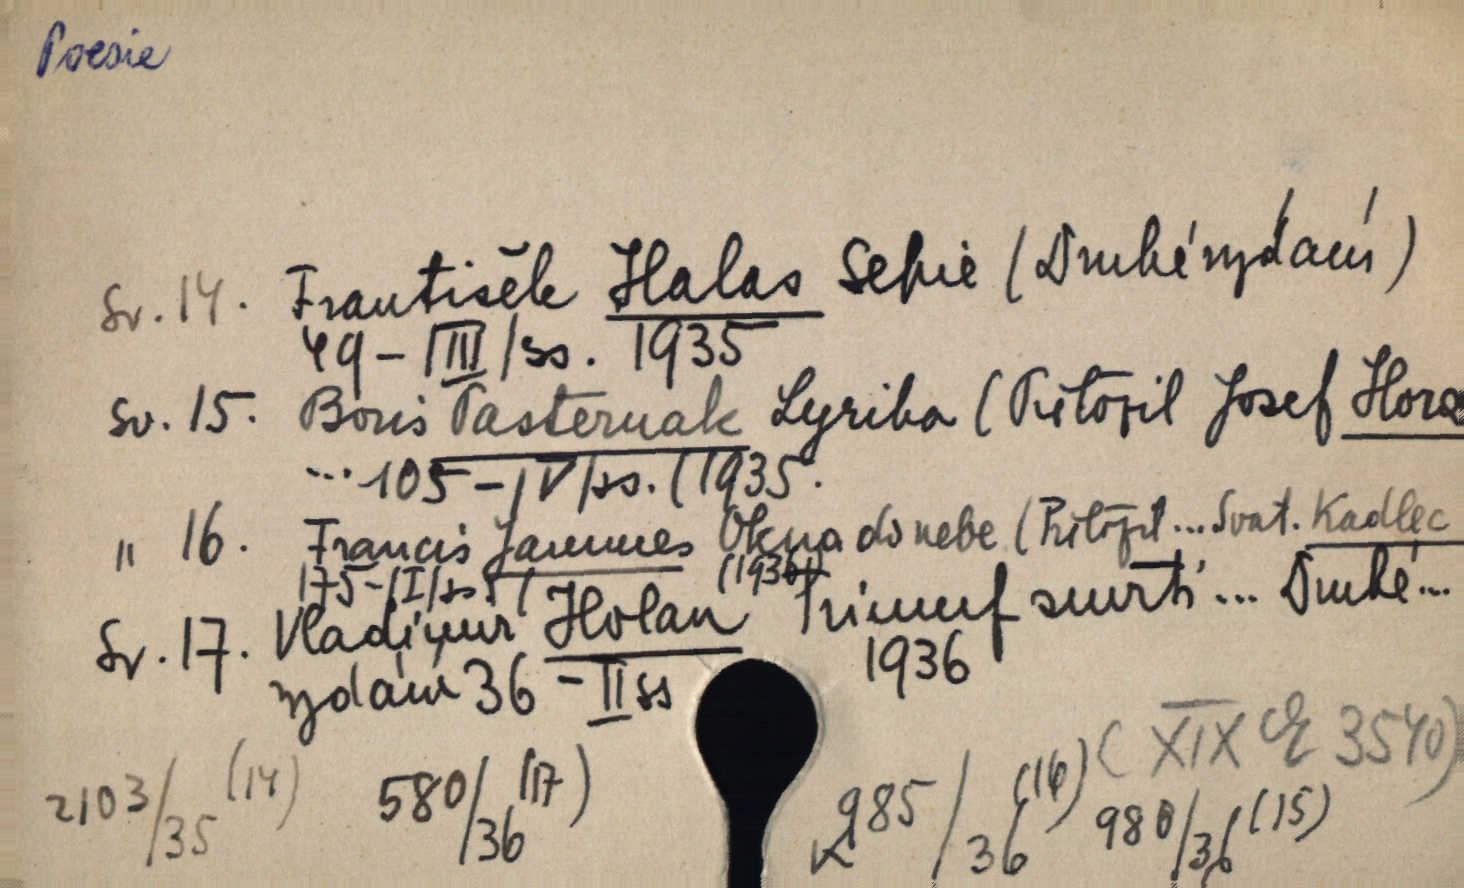 Poesie
Sv. 14. František Halas Sepie (Druhé vydání)
49 - |III| ss. 1935
Sv. 15. Boris Pasternak Lyrika (Přeložil Josef Hora
... 105 - |V| ss. (1935.
" 16. Francis Jammes Okna do nebe (Přeložil... Svat. Kadlec
175 - |I| ss (1936)
Sv. 17. Vladimír Holan Triumf smrti ... Druhé ...
vydání 36 - II ss 1936
(XIX E 3540)
2103/35 (14) 580/36 (17) 985/36 (16) 980/36 (15)